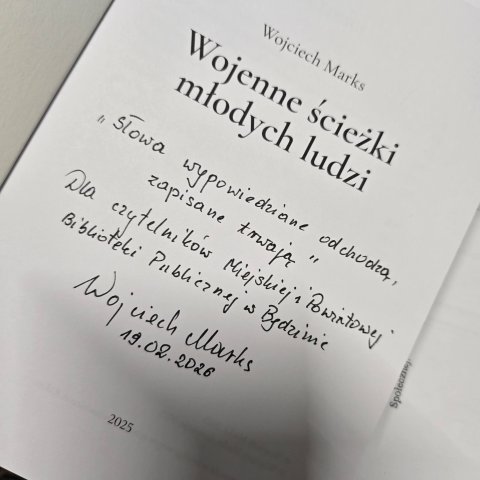 Wojciech Marks
Wojenne ścieżki
młodych ludzi
„ Słowa wypowiedziane odchodzą,
zapisane trwają "
Dla czytelników Miejskiej i Powiatowej
Biblioteki Publicznej w Będzinie
Wojciech Marks
19.02.2026
2025
Społecznej